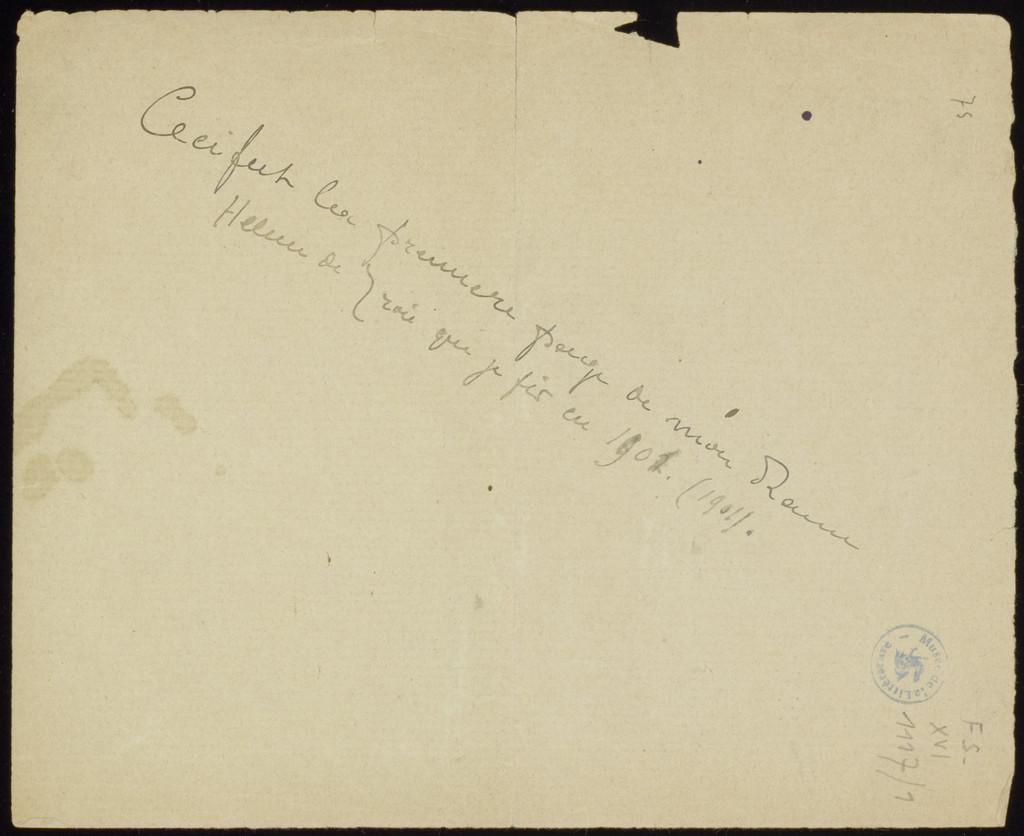 Ceci fut la première page de mon Roman
Helene de Troie que je fis en 1901. (1901).
75
Musée de la Littérature
FS-
XVI
1117/1